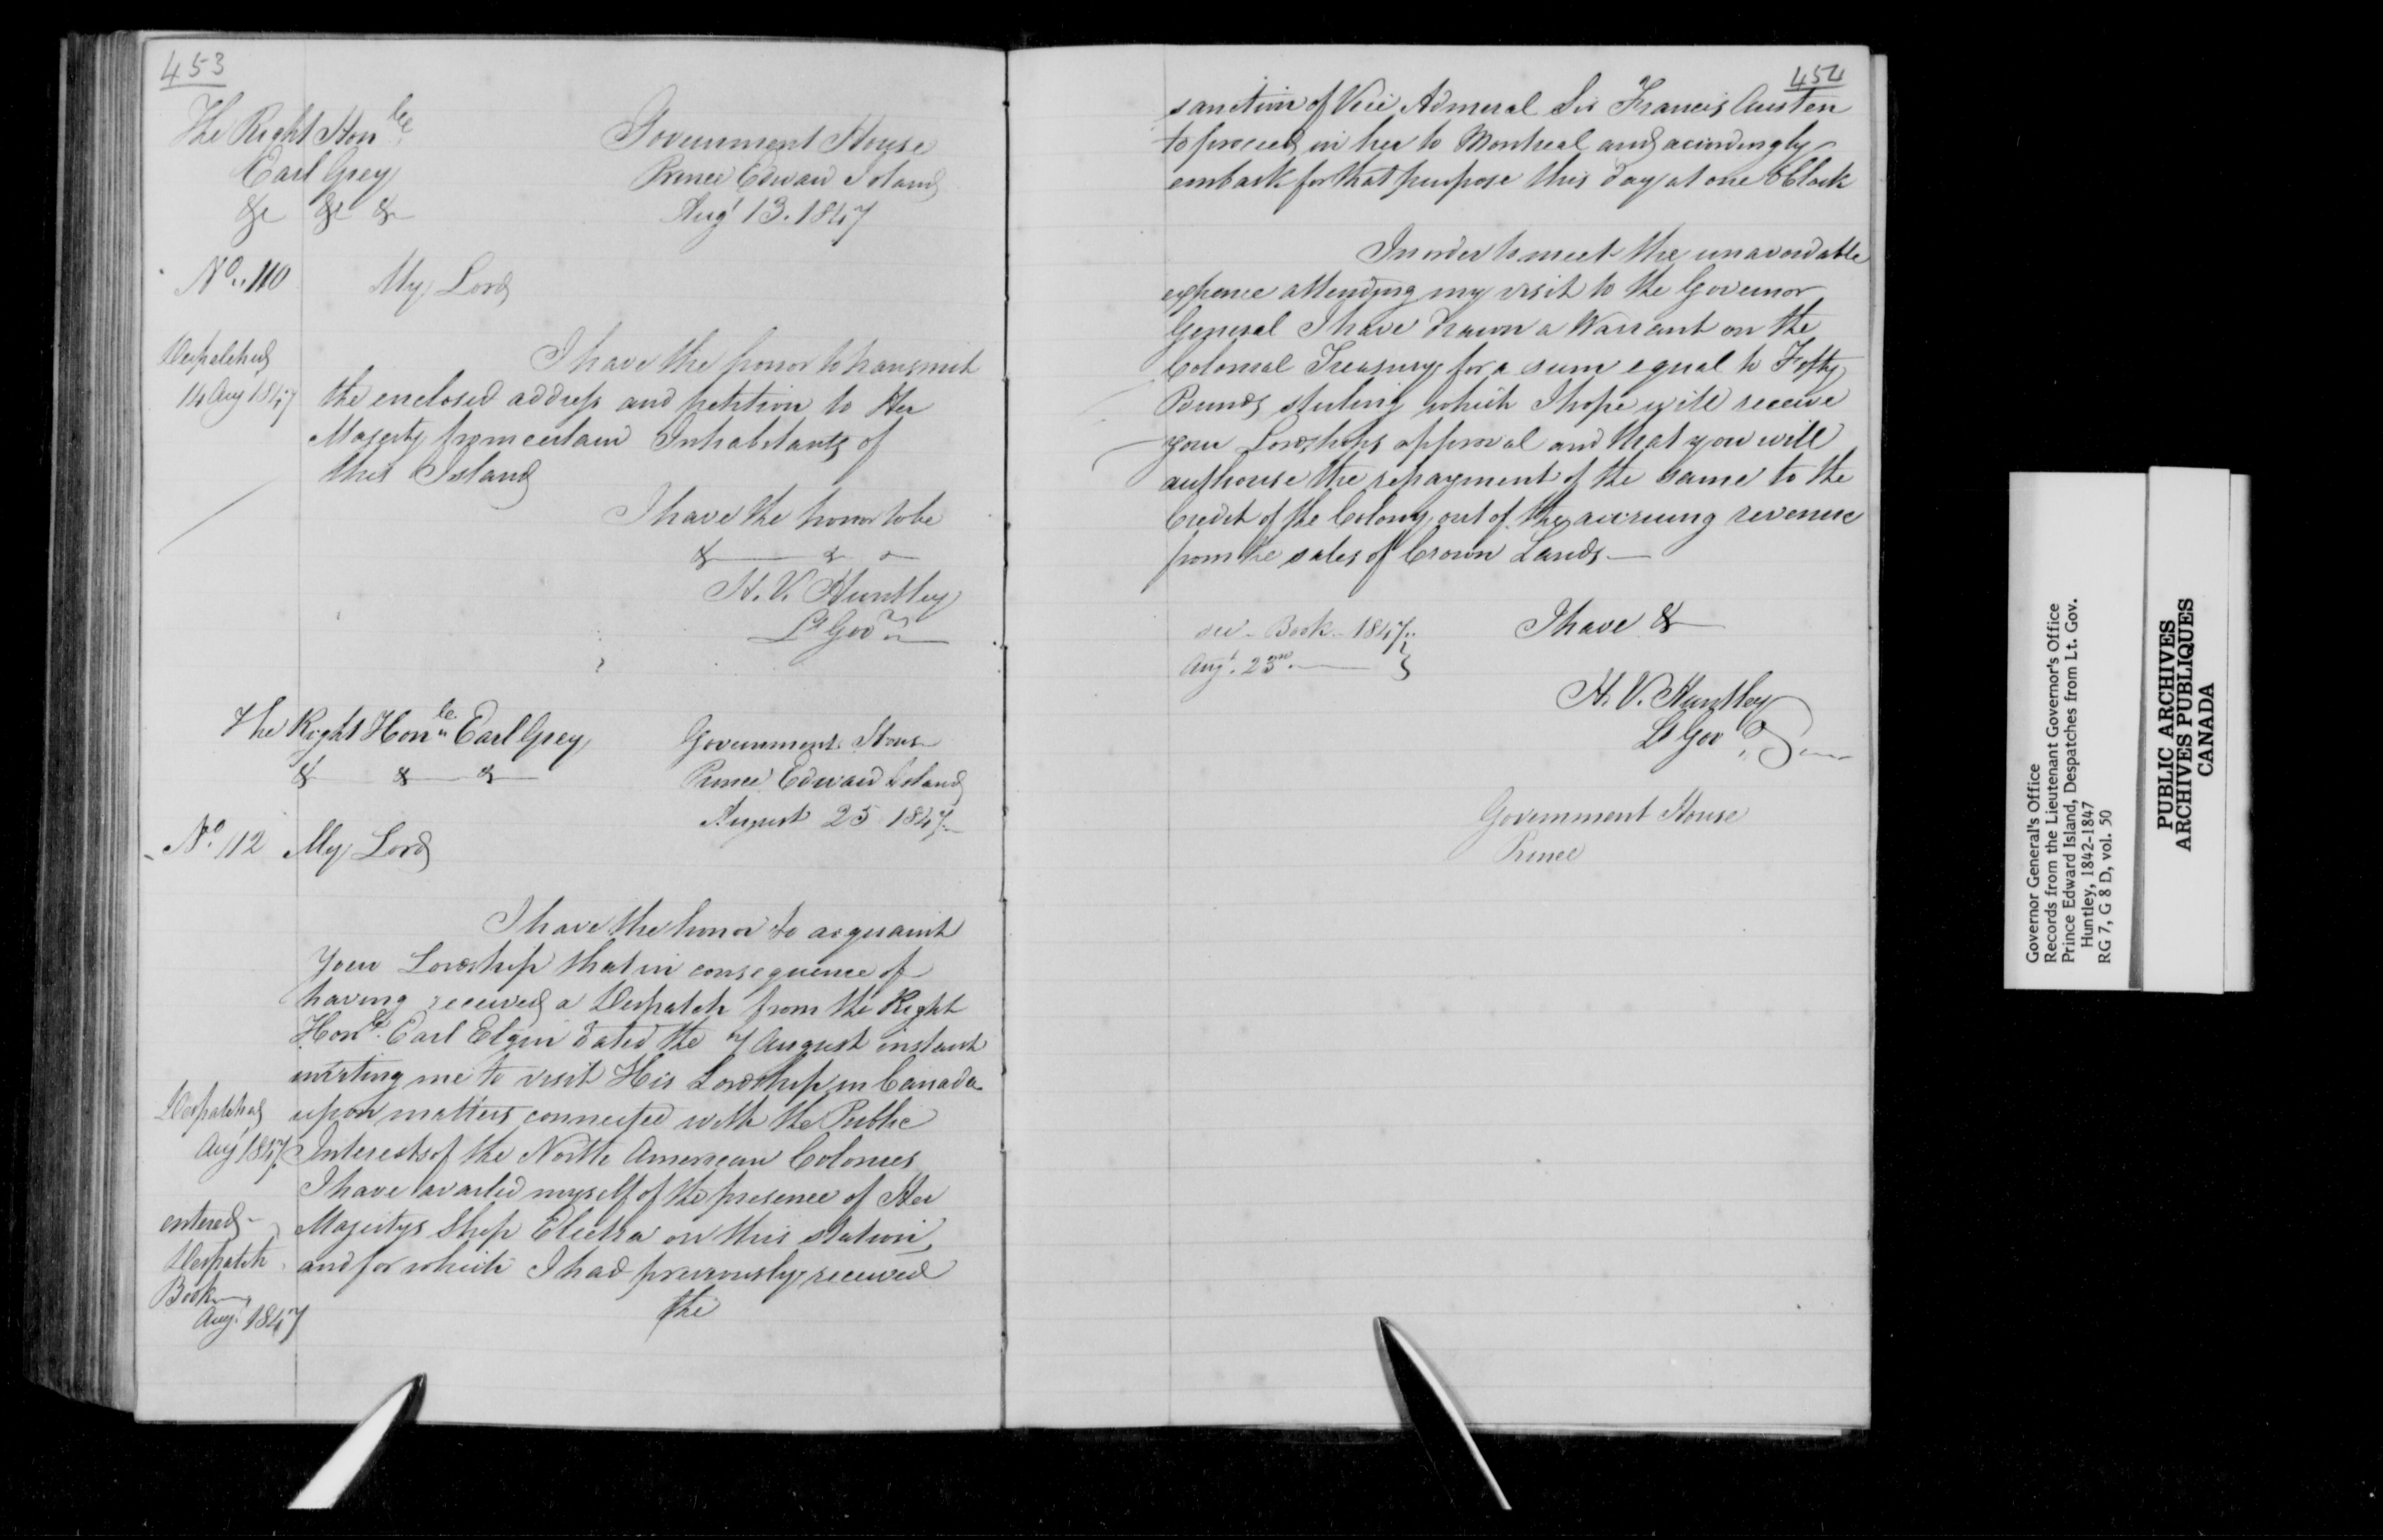 453
The Right Honble
Earl Grey
&c &c &c
Government House
Prince Edward Island
Augt 13. 1847
No. 110
My Lord
Despatched
14 Aug 1847
I have the honor to transmit
the enclosed address and petition to Her
Majesty from certain Inhabitants of
this Island
I have the honor to be
& & &
H. V. Huntley
Lt Govr
The Right Honble Earl Grey
& & &
Government House
Prince Edward Island
August 25 1847
No. 112
My Lord
I have the honor to acquaint
Your Lordship that in consequence of
having received a Despatch from the Right
Honble Earl Elgin dated the 7 August instant
inviting me to visit His Lordship in Canada
upon matters connected with the Public
Interests of the North American Colonies
I have availed myself of the presence of Her
Majestys Ship Electra on this station,
and for which I had previously received
the
Despatched
Aug 1847
entered
Despatch
Book
Aug. 1847
454
sanction of Vice Admeral Sir Francis Austen
to proceed in her to Montreal and accordingly
embark for that purpose this day at one OClock
In order to meet the unavoidable
expence attending my visit to the Governor
General I have drawn a Warrant on the
Colonial Treasury for a sum equal to Fifty
Pounds sterling which I hope will receive
your Lordships approval and that you will
authorise the repayment of the same to the
Credit of the Colony out of the accruing revenue
from the sales of Crown Lands
Book 1847
Augt. 23rd
I have &
H. V. Huntley
Lt Govr
Government House
Prince
Governor General's Office
Records from the Lieutenant Governor's Office
Prince Edward Island, Despatches from Lt. Gov.
Huntley, 1842-1847
RG 7, G 8 D, vol. 50
PUBLIC ARCHIVES
ARCHIVES PUBLIQUES
CANADA